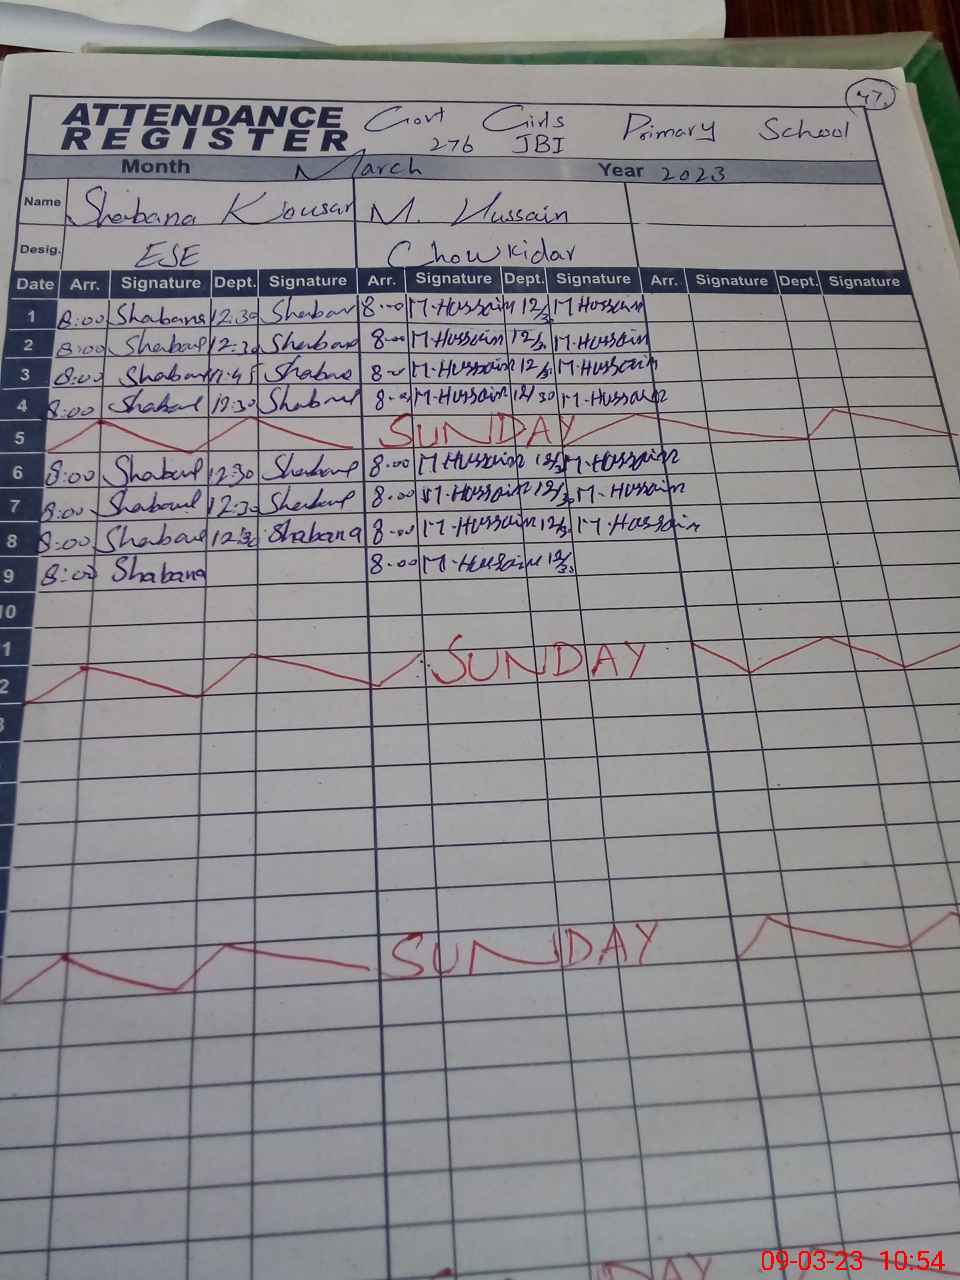 47.
ATTENDANCE REGISTER Govt Girls Primary School
276 JBI
Month March Year 2023
Name Shabana Kousar M. Hussain
Desig. ESE Chowkidar
Date Arr. Signature Dept. Signature Arr. Signature Dept. Signature Arr. Signature Dept. Signature
1 8:00 Shabana 12:30 Shabana 8:00 M.Hussain 12/30 M Hussain
2 8:00 Shabana 12:30 Shabana 8:00 M.Hussain 12/30 M.Hussain
3 8:00 Shabana Shabana 8:00 M.Hussain 12/30 M.Hussain
4 8:00 Shabana 12:30 Shabana 8:00 M.Hussain 12/30 M.Hussain
5 SUNDAY
6 8:00 Shabana 12:30 Shabana 8:00 M.Hussain 12/30 M.Hussain
7 8:00 Shabana 12:30 Shabana 8:00 M.Hussain 12/30 M.Hussain
8 8:00 Shabana 12:30 Shabana 8:00 M.Hussain 12/30 M.Hussain
9 8:00 Shabana 8:00 M.Hussain 12/30
10
1
2 SUNDAY
3
SUNDAY
09-03-23 10:54